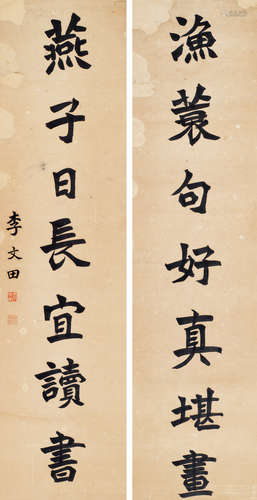 漁蓑句好真堪畫
燕子日長宜讀書
李文田